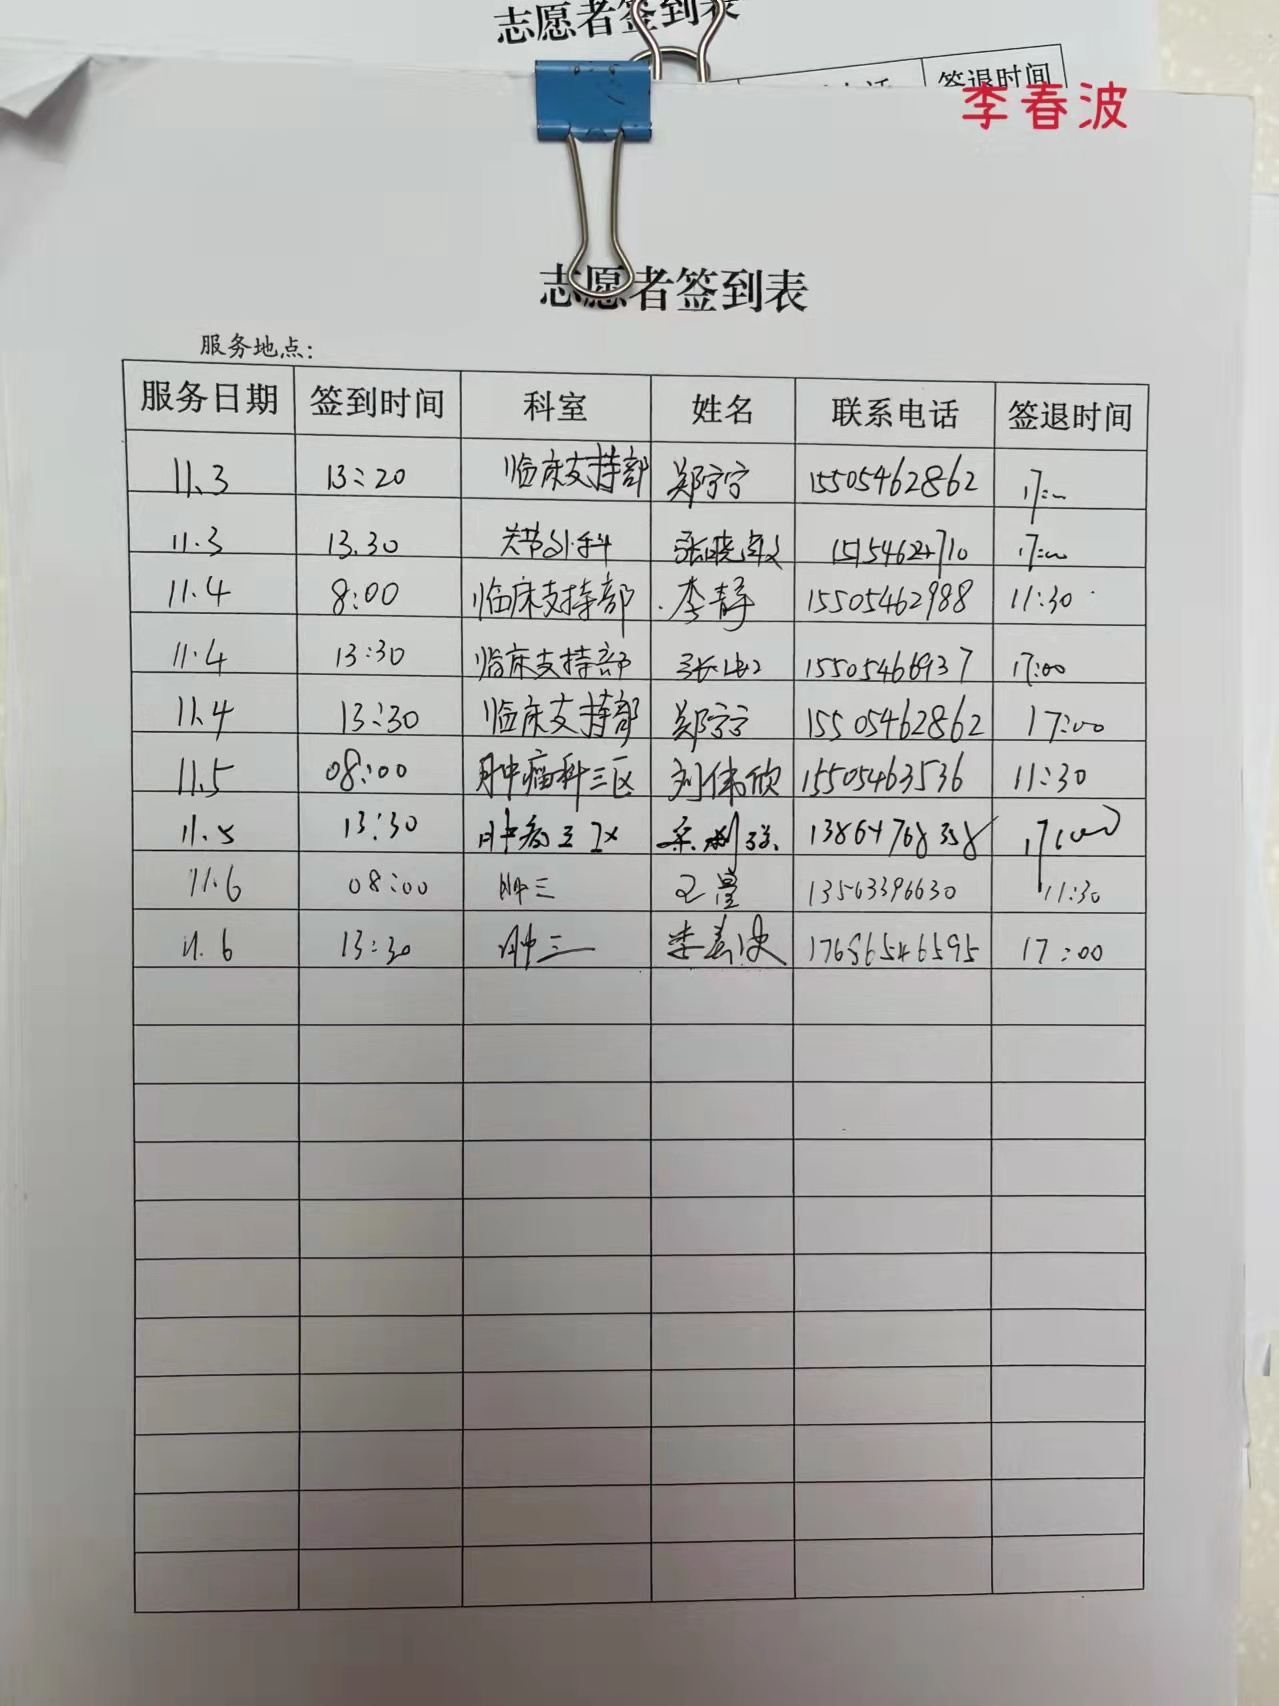 志愿者签到表
签退时间
李春波
志愿者签到表
服务地点：
服务日期 签到时间 科室 姓名 联系电话 签退时间
11.3 13:20 临床支持部 郑宁宁 15505462862 17:00
11.3 13.30 关节外科 张晓敏 17:00
11.4 8:00 临床支持部 李静 15505462988 11:30
11.4 13:30 临床支持部 15505466937 17:00
11.4 13:30 临床支持部 郑宁宁 15505462862 17:00
11.5 08:00 肿瘤科三区 刘伟欣 15505463536 11:30
11.5 13:30 肿瘤三区 13864768358 17:00
11.6 08:00 肿三 王星 13563396630 11:30
11.6 13:30 肿三 李春波 17686546595 17:00